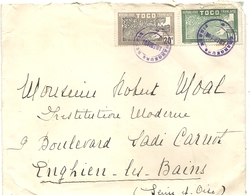 TOGO TOGO
Monsieur Robert Moal
Institution Moderne
9 Boulevard Sadi Carnot
Enghien-les-Bains
(Seine & Oise)